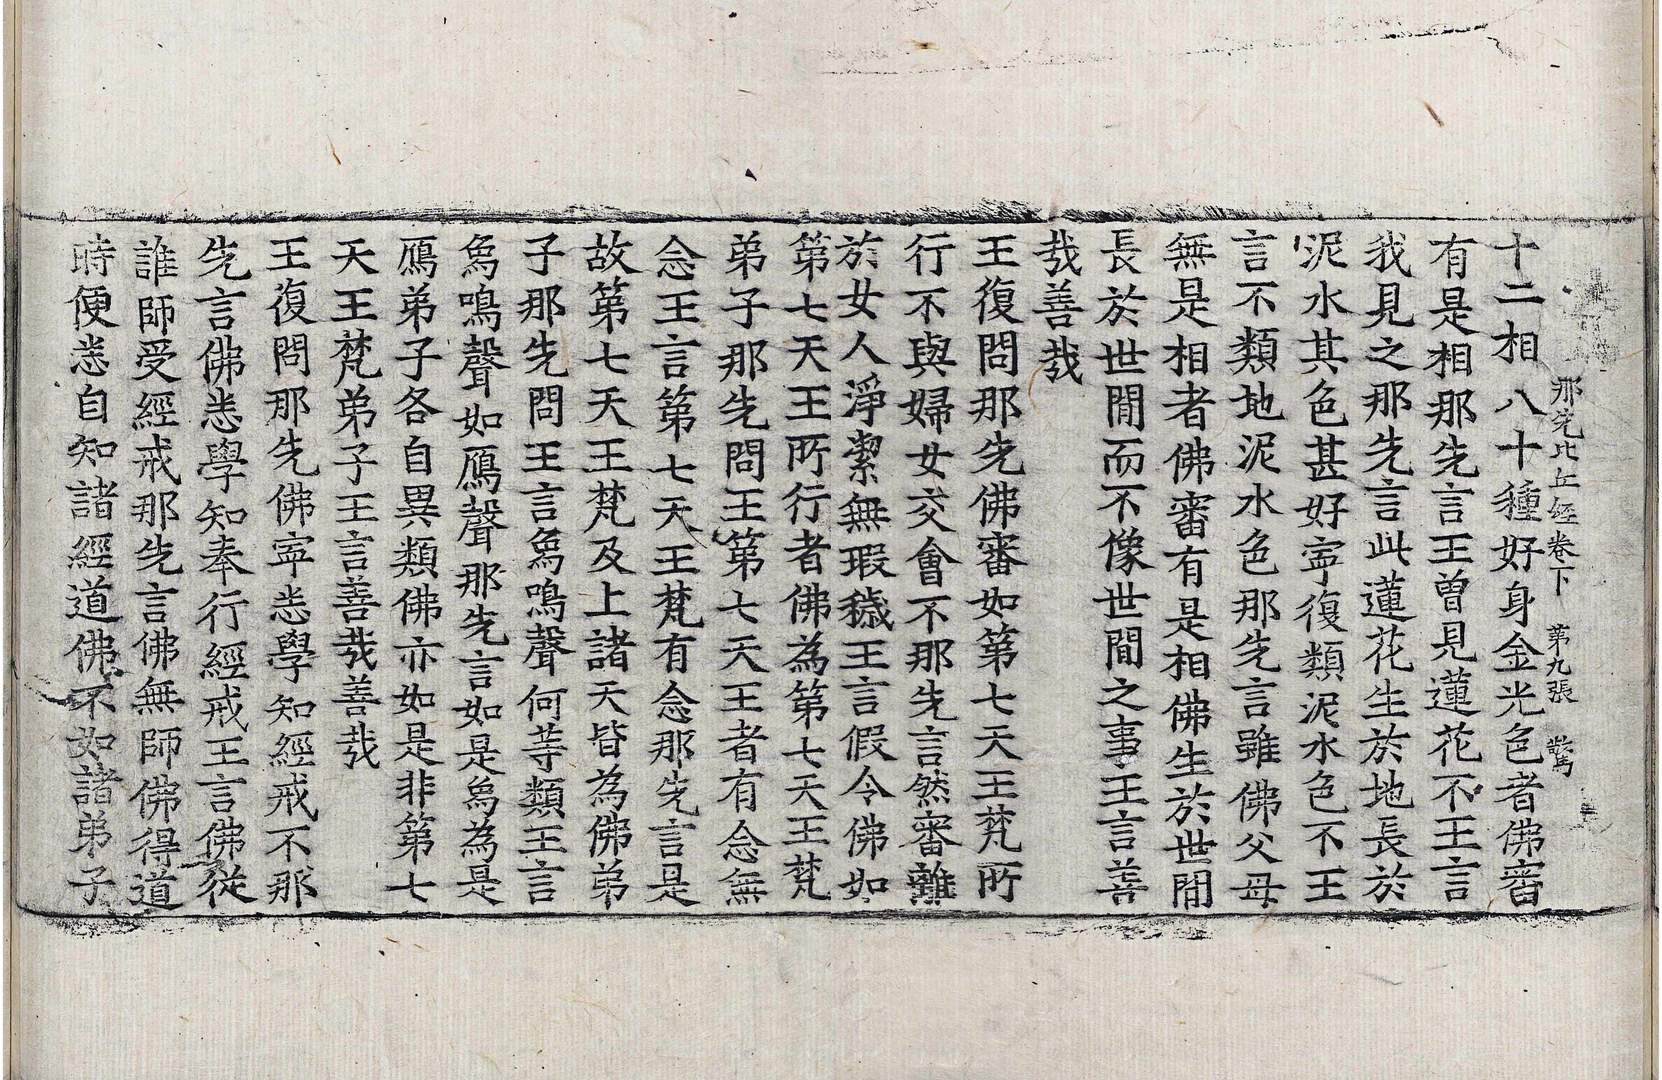 那先比丘經卷下 第九張 驚
十二相八十種好身金光色者佛審
有是相那先言王曾見蓮花不王言
我見之那先言此蓮花生於地長於
泥水其色甚好寜復類泥水色不王
言不類地泥水色那先言雖佛父母
無是相者佛審有是相佛生於世間
長於世間而不像世間之事王言善
㢤善㢤
王復問那先佛審如第七天王梵所
行不與婦女交會不那先言然審離
於女人淨潔無瑕穢王言假令佛如
第七天王所行者佛為第七天王梵
弟子那先問王第七天王者有念無
念王言第七天王梵有念那先言是
故第七天王梵及上諸天皆為佛弟
子那先問王言鳥鳴聲何等類王言
鳥鳴聲如鴈聲那先言如是鳥為是
鴈弟子各自異類佛亦如是非第七
天王梵弟子王言善㢤善㢤
王復問那先佛寜悉學知經戒不那
先言佛悉學知奉行經戒王言佛從
誰師受經戒那先言佛無師佛得道
時便悉自知諸經道佛不如諸弟子